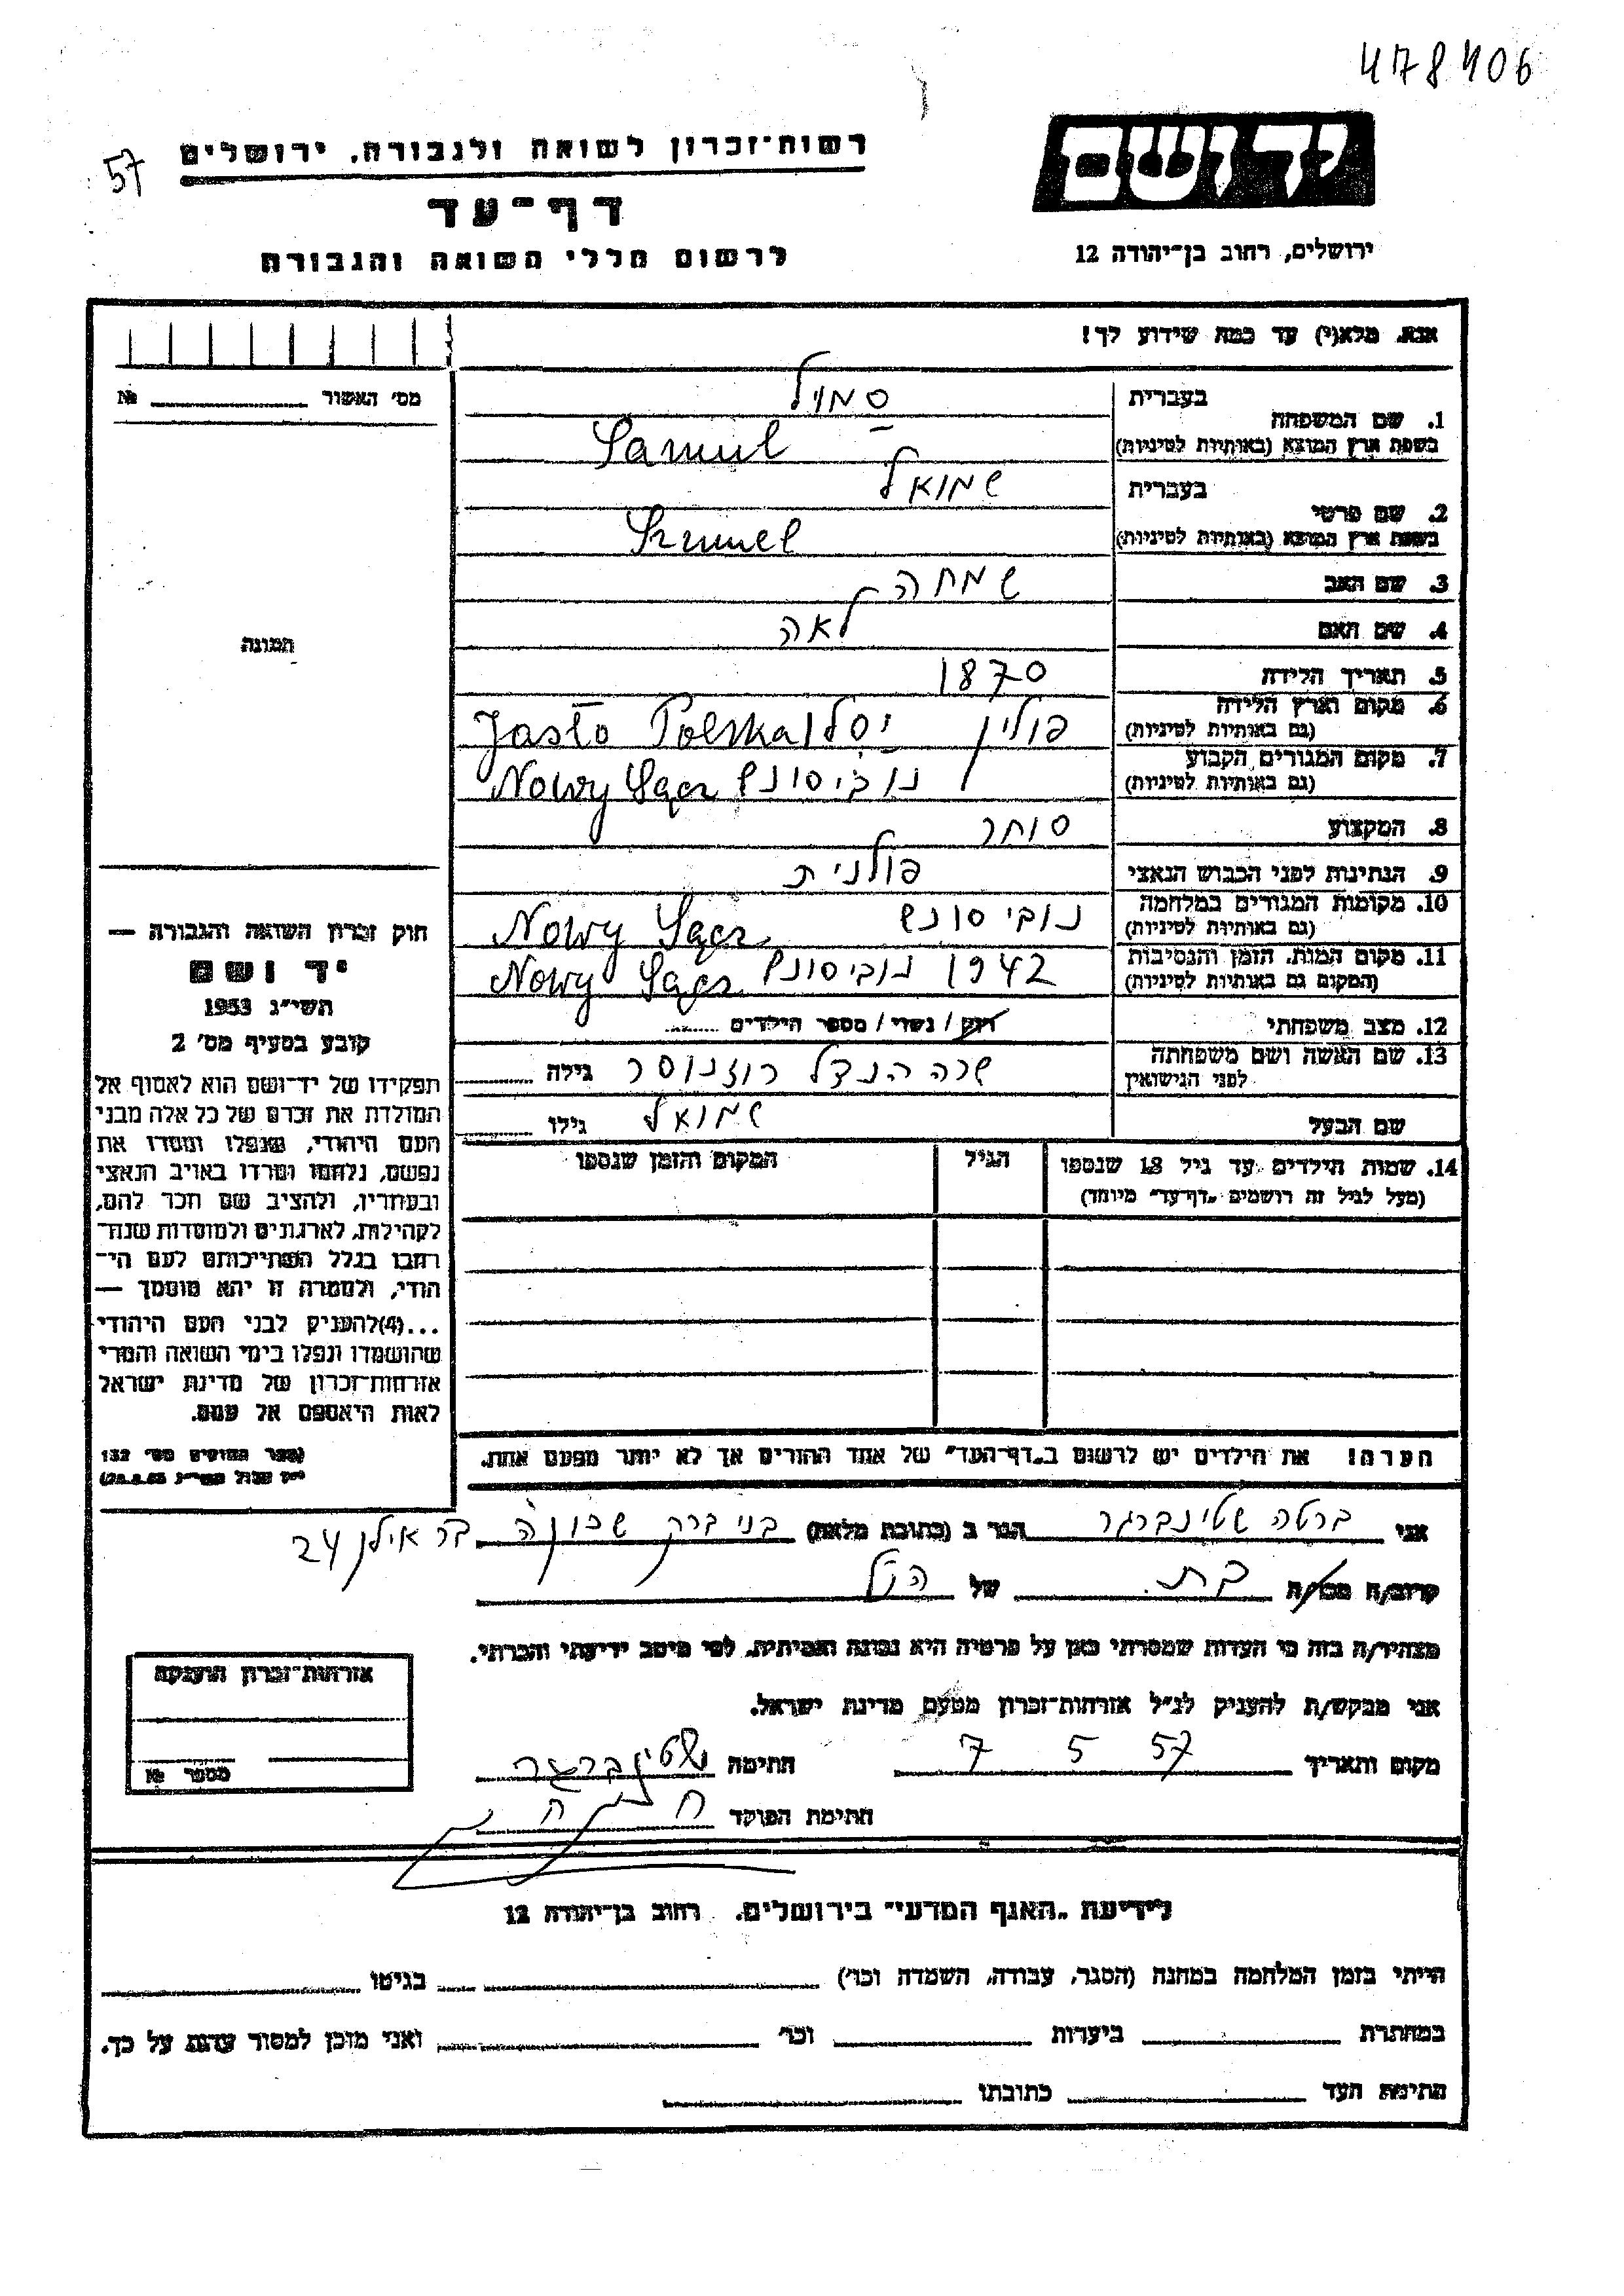 478406
57
יד ושם
רשות־זכרון לשואה ולגבורה, ירושלים
דף־עד
לרשום חללי השואה והגבורה
ירושלים, רחוב בן־יהודה 12
אנא, מלא(י) עד כמה שידוע לך!
מס׳ האשור № 
תמונה
1. שם המשפחה
בעברית סמול
בשפת ארץ המוצא (באותיות לטיניות) Samul
2. שם פרטי
בעברית שמואל
בשפת ארץ המוצא (באותיות לטיניות) Szmuel
3. שם האב שמחה
4. שם האם לאה
5. תאריך הלידה 1870
6. מקום וארץ הלידה פולין יסלו Jasło Polska
(גם באותיות לטיניות)
7. מקום המגורים הקבוע נובי סונץ Nowy Sącz
(גם באותיות לטיניות)
8. המקצוע סוחר
9. הנתינות לפני הכבוש הנאצי פולנית
10. מקומות המגורים במלחמה נובי סונץ Nowy Sącz
(גם באותיות לטיניות)
11. מקום המות, הזמן והנסיבות 1942 נובי סונץ Nowy Sącz
(המקום גם באותיות לטיניות)
12. מצב משפחתי רווק / נשוי / מספר הילדים
13. שם האשה ושם משפחתה שרה הנדל רוזנוסר גילה
לפני הנישואין
שם הבעל שמואל גילו
14. שמות הילדים עד גיל 18 שנספו הגיל המקום והזמן שנספו
(מעל לגיל זה רושמים „דף־עד״ מיוחד)
הערה! את הילדים יש לרשום ב„דף־העד״ של אחד ההורים אך לא יותר מפעם אחת.
חוק זכרון השואה והגבורה —
יד ושם
תשי״ג 1953
קובע בסעיף מס׳ 2
תפקידו של יד־ושם הוא לאסוף אל
המולדת את זכרם של כל אלה מבני
העם היהודי, שנפלו ומסרו את
נפשם, נלחמו ומרדו באויב הנאצי
ובעוזריו, ולהציב שם וזכר להם,
לקהילות, לארגונים ולמוסדות שנח־
רבו בגלל השתייכותם לעם הי־
הודי, ולמטרה זו יהא מוסמך —
...(4)להעניק לבני העם היהודי
שהושמדו ונפלו בימי השואה והמרי
אזרחות־זכרון של מדינת ישראל
לאות היאספם אל עמם.
(ספר החוקים מס׳ 132
אני ברטה שטינברגר הגר ב (כתובת מלאה) בני ברק שכונה בר אילן 24
קרוב/ה מכר/ה בת של הנ״ל
מצהיר/ה בזה כי העדות שמסרתי כאן על פרטיה היא נכונה ואמיתית, לפי מיטב ידיעתי והכרתי.
אני מבקש/ת להעניק לנ״ל אזרחות־זכרון מטעם מדינת ישראל.
מקום ותאריך 7 5 57 חתימה שטינברגר
חתימת הפוקד
אזרחות־זכרון הוענקה
מספר №
לידיעת „האגף המדעי״ בירושלים. רחוב בן־יהודה 12
הייתי בזמן המלחמה במחנה (הסגר, עבודה, השמדה וכו׳) בגיטו
במחתרת ביערות וכו׳ ואני מוכן למסור עדות על כך.
חתימת העד כתובתו